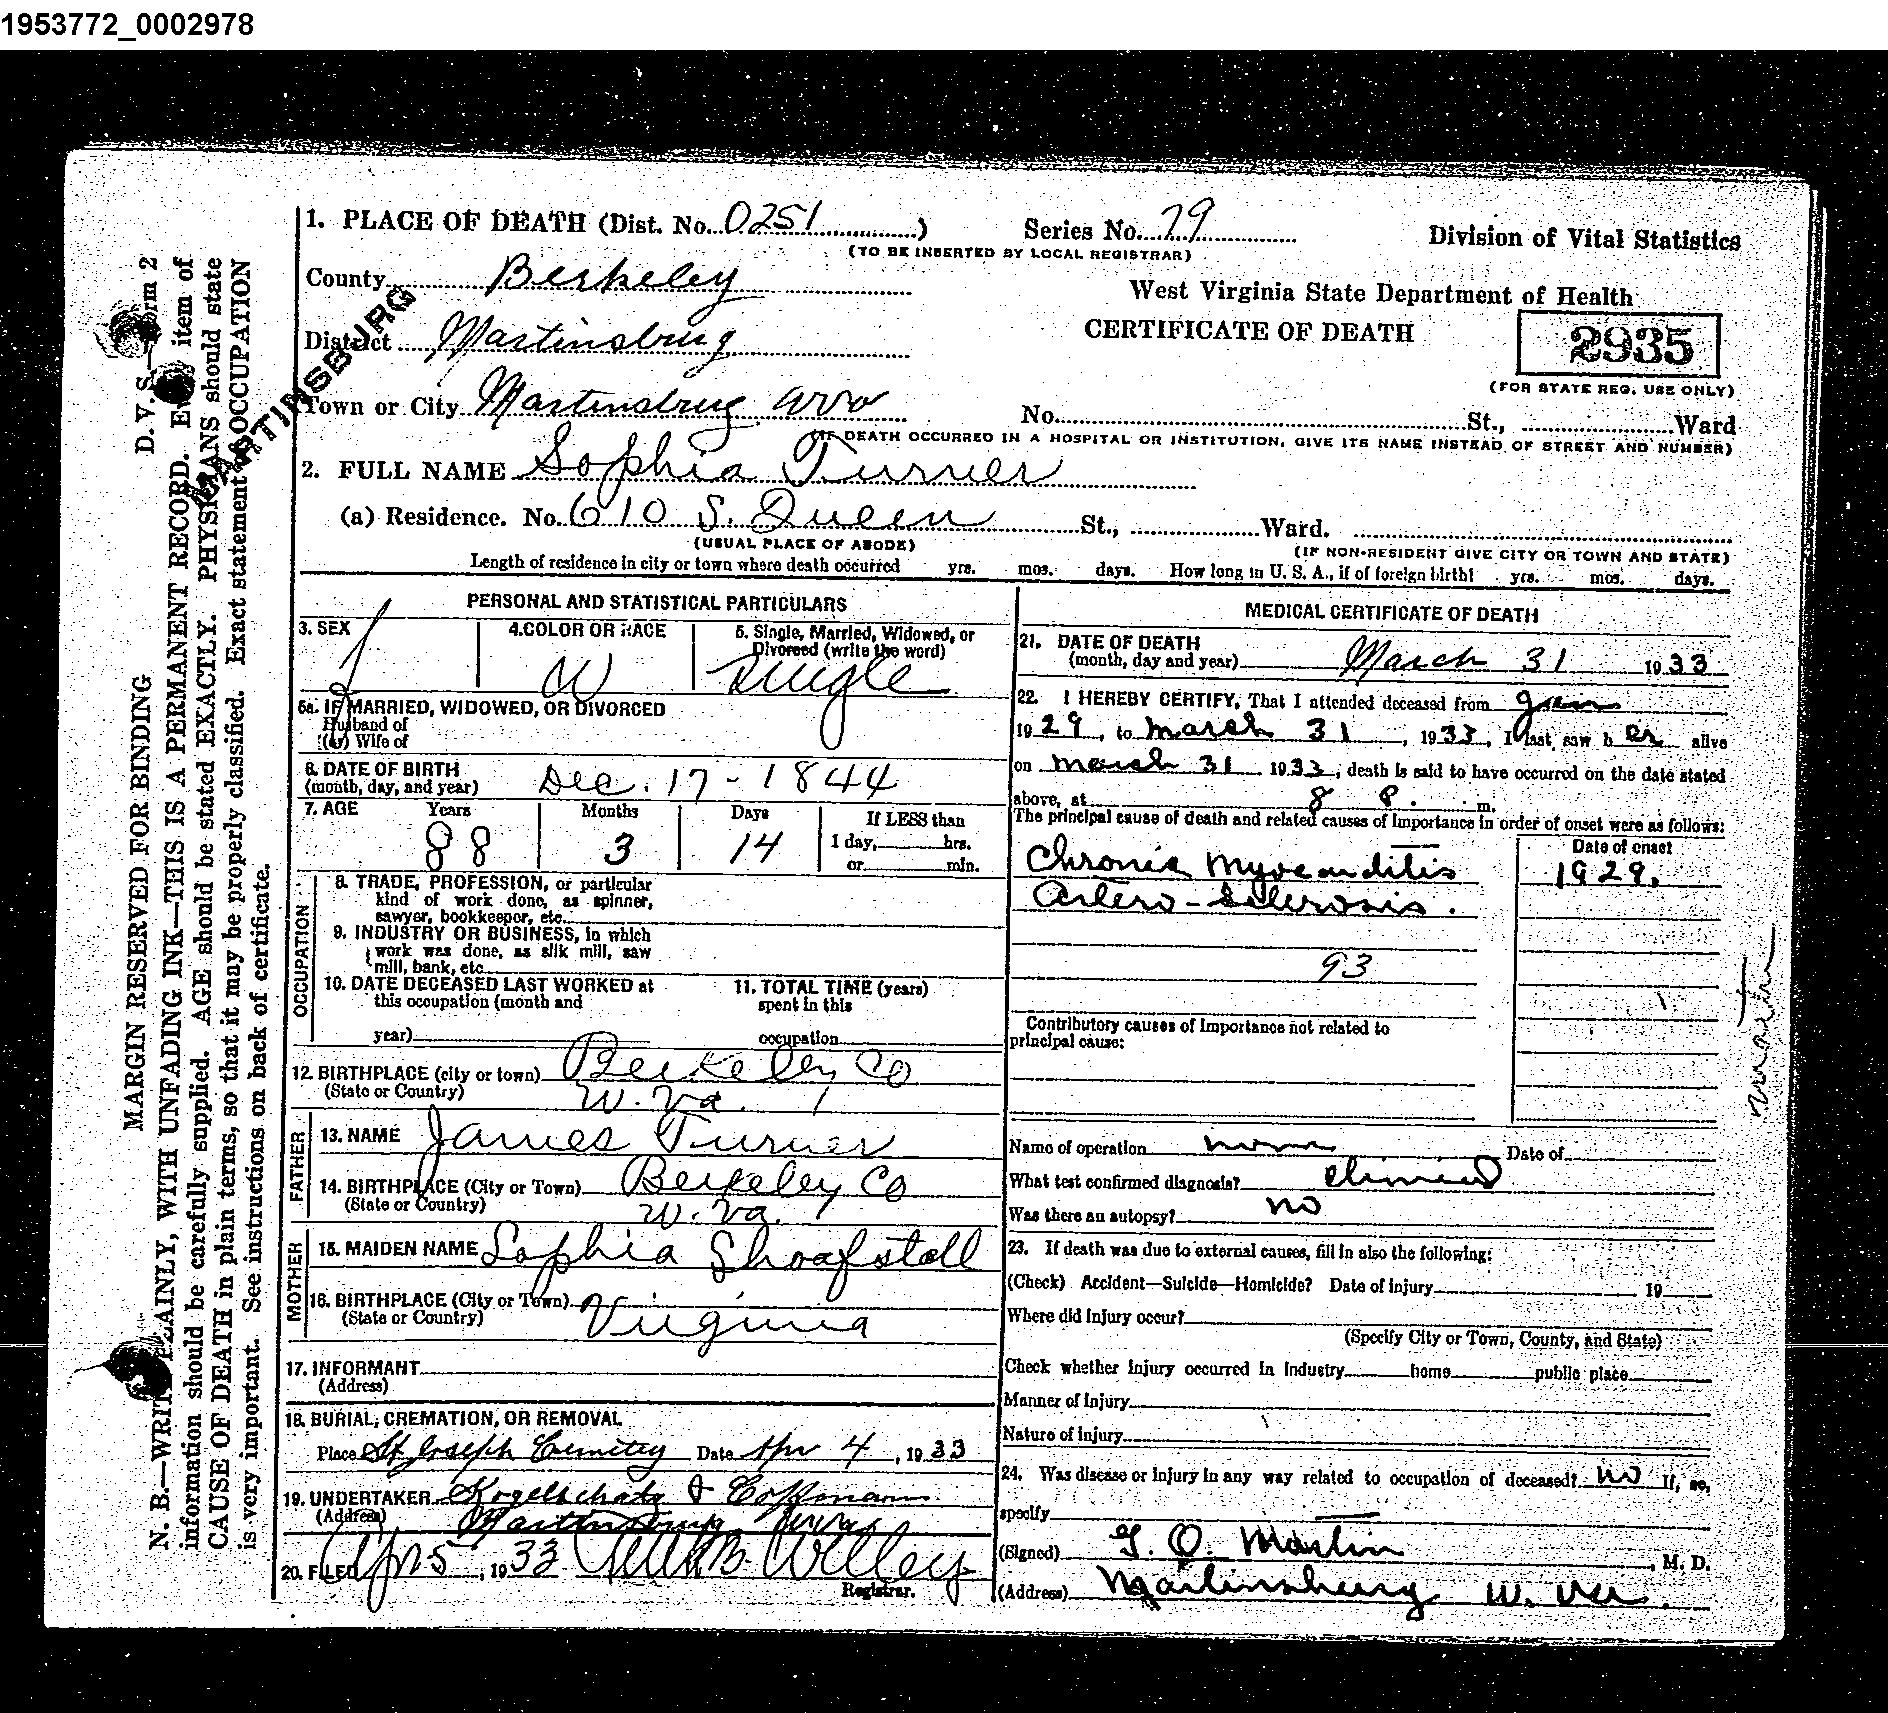 1953772_0002978
1. PLACE OF DEATH (Dist. No. 0251) Series No. 79 Division of Vital Statistics
(TO BE INSERTED BY LOCAL REGISTRAR)
County Berkeley
West Virginia State Department of Health
District Martinsburg
CERTIFICATE OF DEATH
2935
(FOR STATE REG. USE ONLY)
MARTINSBURG
Town or City Martinsburg No. St., Ward
(IF DEATH OCCURRED IN A HOSPITAL OR INSTITUTION, GIVE ITS NAME INSTEAD OF STREET AND NUMBER)
2. FULL NAME Sophia Turner
(a) Residence. No. 610 S. Queen St., Ward.
(USUAL PLACE OF ABODE) (IF NON-RESIDENT GIVE CITY OR TOWN AND STATE)
Length of residence in city or town where death occurred yrs. mos. days. How long in U. S. A., if of foreign birth? yrs. mos. days.
PERSONAL AND STATISTICAL PARTICULARS
3. SEX 4. COLOR OR RACE 5. Single, Married, Widowed, or
Divorced (write the word)
f W Single
5a. IF MARRIED, WIDOWED, OR DIVORCED
Husband of
(or) Wife of
6. DATE OF BIRTH
(month, day, and year) Dec. 17 - 1844
7. AGE Years Months Days If LESS than
88 3 14 1 day, hrs.
or min.
OCCUPATION
8. TRADE, PROFESSION, or particular
kind of work done, as spinner,
sawyer, bookkeeper, etc.
9. INDUSTRY OR BUSINESS, in which
work was done, as silk mill, saw
mill, bank, etc.
10. DATE DECEASED LAST WORKED at 11. TOTAL TIME (years)
this occupation (month and spent in this
year) occupation
12. BIRTHPLACE (city or town) Berkeley Co
(State or Country) W. Va.
FATHER
13. NAME James Turner
14. BIRTHPLACE (City or Town) Berkeley Co
(State or Country) W. Va.
MOTHER
15. MAIDEN NAME Sophia Shoafstall
16. BIRTHPLACE (City or Town)
(State or Country) Virginia
17. INFORMANT
(Address)
18. BURIAL, CREMATION, OR REMOVAL
Place St Joseph Cemitey Date Apr 4, 1933
19. UNDERTAKER Kogelschatz & Coffmann
(Address) Martinsburg
20. FILED Apr 5, 1933 B. Willey
Registrar.
MEDICAL CERTIFICATE OF DEATH
21. DATE OF DEATH
(month, day and year) March 31 1933
22. I HEREBY CERTIFY, That I attended deceased from Jan
1929, to March 31, 1933, I last saw her alive
on March 31 1933, death is said to have occurred on the date stated
above, at 8 P. m.
The principal cause of death and related causes of importance in order of onset were as follows:
Date of onset
Chronic Myocarditis 1929.
Artero-Sclerosis.
93
Contributory causes of importance not related to
principal cause:
Name of operation none Date of
What test confirmed diagnosis? clinical
Was there an autopsy? no
23. If death was due to external causes, fill in also the following:
(Check) Accident—Suicide—Homicide? Date of injury 19
Where did injury occur?
(Specify City or Town, County, and State)
Check whether injury occurred in industry home public place
Manner of Injury
Nature of Injury
24. Was disease or injury in any way related to occupation of deceased? no If, so,
specify
(Signed) G. O. Martin, M. D.
(Address) Martinsburg W. Va.
Martin
D. V. S. Form 2
MARGIN RESERVED FOR BINDING
N. B.—WRITE PLAINLY, WITH UNFADING INK—THIS IS A PERMANENT RECORD. Every item of
information should be carefully supplied. AGE should be stated EXACTLY. PHYSICIANS should state
CAUSE OF DEATH in plain terms, so that it may be properly classified. Exact statement of OCCUPATION
is very important. See instructions on back of certificate.